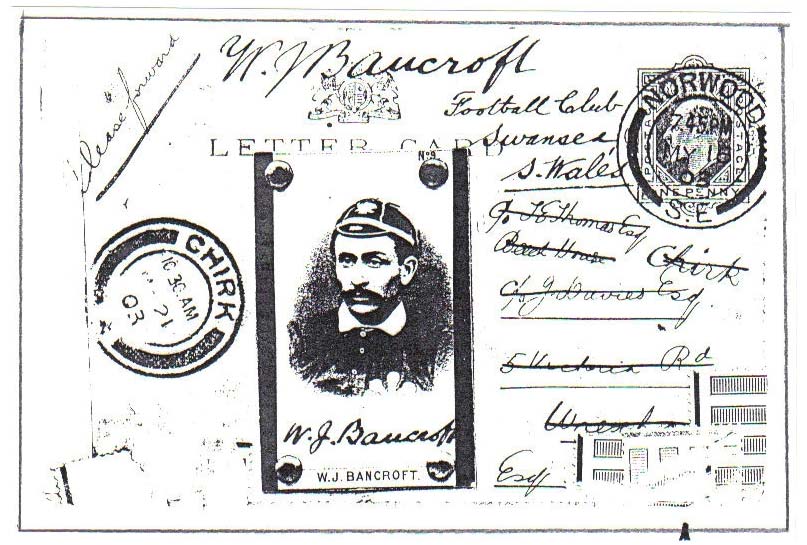 Please forward
W. J Bancroft
Football Club
Swansea
S. Wales
LETTER CARD
NORWOOD
7 45 PM
MY 1
03
S.E.
POSTAGE
ONE PENNY
c/o Thomas Esq
Beech House Chirk
c/o J. Davies Esq
5 Victoria Rd
Esq
CHIRK
10.30 AM
21
03
No 9
W. J. Bancroft
W.J. BANCROFT.